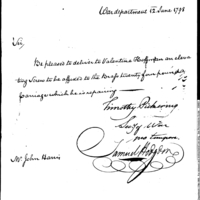 War department 12 June 1798
Sir,
Be pleased to deliver to Valentine Hoffman an eleva
ting Screw to be affixed to the Brass twenty four pounder
Carriage which he is repairing
Timothy Pickering
Secy of War
pro tempore
Samuel Hodgdon
Mr. John Harris